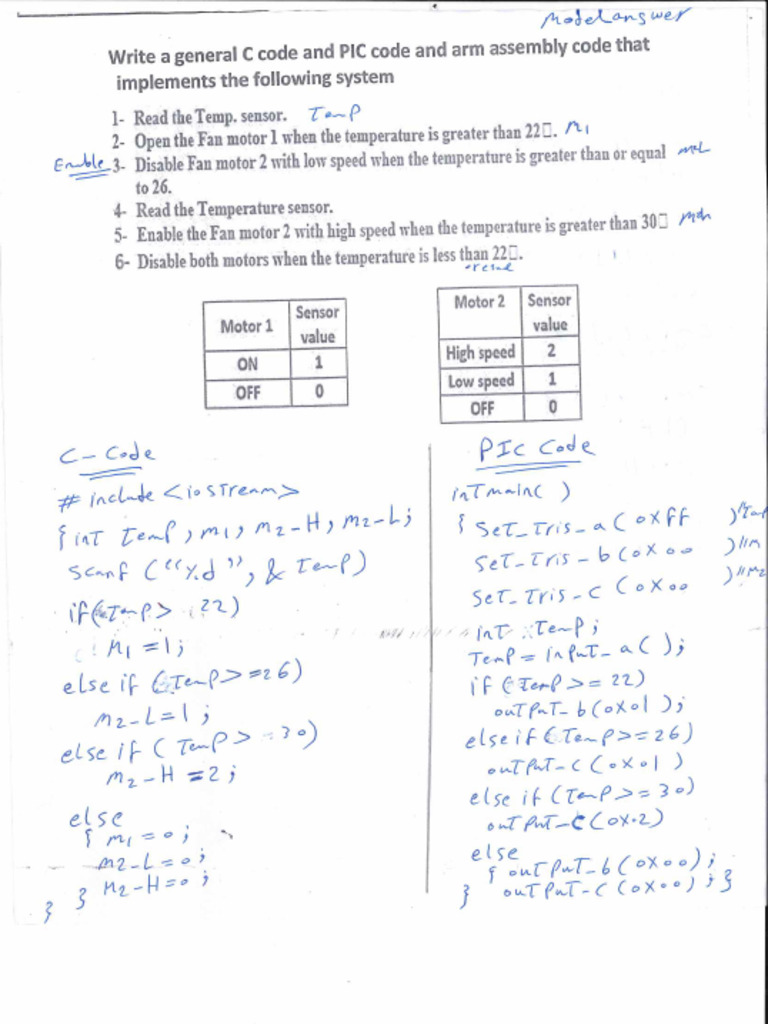 Model answer
Write a general C code and PIC code and arm assembly code that
implements the following system
1- Read the Temp. sensor. Temp
2- Open the Fan motor 1 when the temperature is greater than 22□. M1
Enable 3- Disable Fan motor 2 with low speed when the temperature is greater than or equal m2L
to 26.
4- Read the Temperature sensor.
5- Enable the Fan motor 2 with high speed when the temperature is greater than 30□ M2h
6- Disable both motors when the temperature is less than 22□.
Motor 1 Sensor value
ON 1
OFF 0
Motor 2 Sensor value
High speed 2
Low speed 1
OFF 0
C-Code
# include <iostream>
{ int temp, m1, m2-H, m2-L;
scanf ("%d", & Temp)
if (Temp > 22)
M1 = 1;
else if (Temp >= 26)
m2-L = 1;
else if (Temp > = 30)
m2-H = 2;
else
{ m1 = 0;
m2-L = 0;
} M2-H = 0;
}
PIC Code
int main( )
{ Set_Tris_a (0xff ) //
Set_Tris_b (0x00 ) //M
Set_Tris_c (0x00 ) //M2
int Temp;
Temp = input_a( );
if (Temp >= 22)
output_b(0x01);
else if (Temp >= 26)
output_c (0x01)
else if (Temp >= 30)
output_c (0x.2)
else
{ output_b (0x00);
} output_c (0x00); }